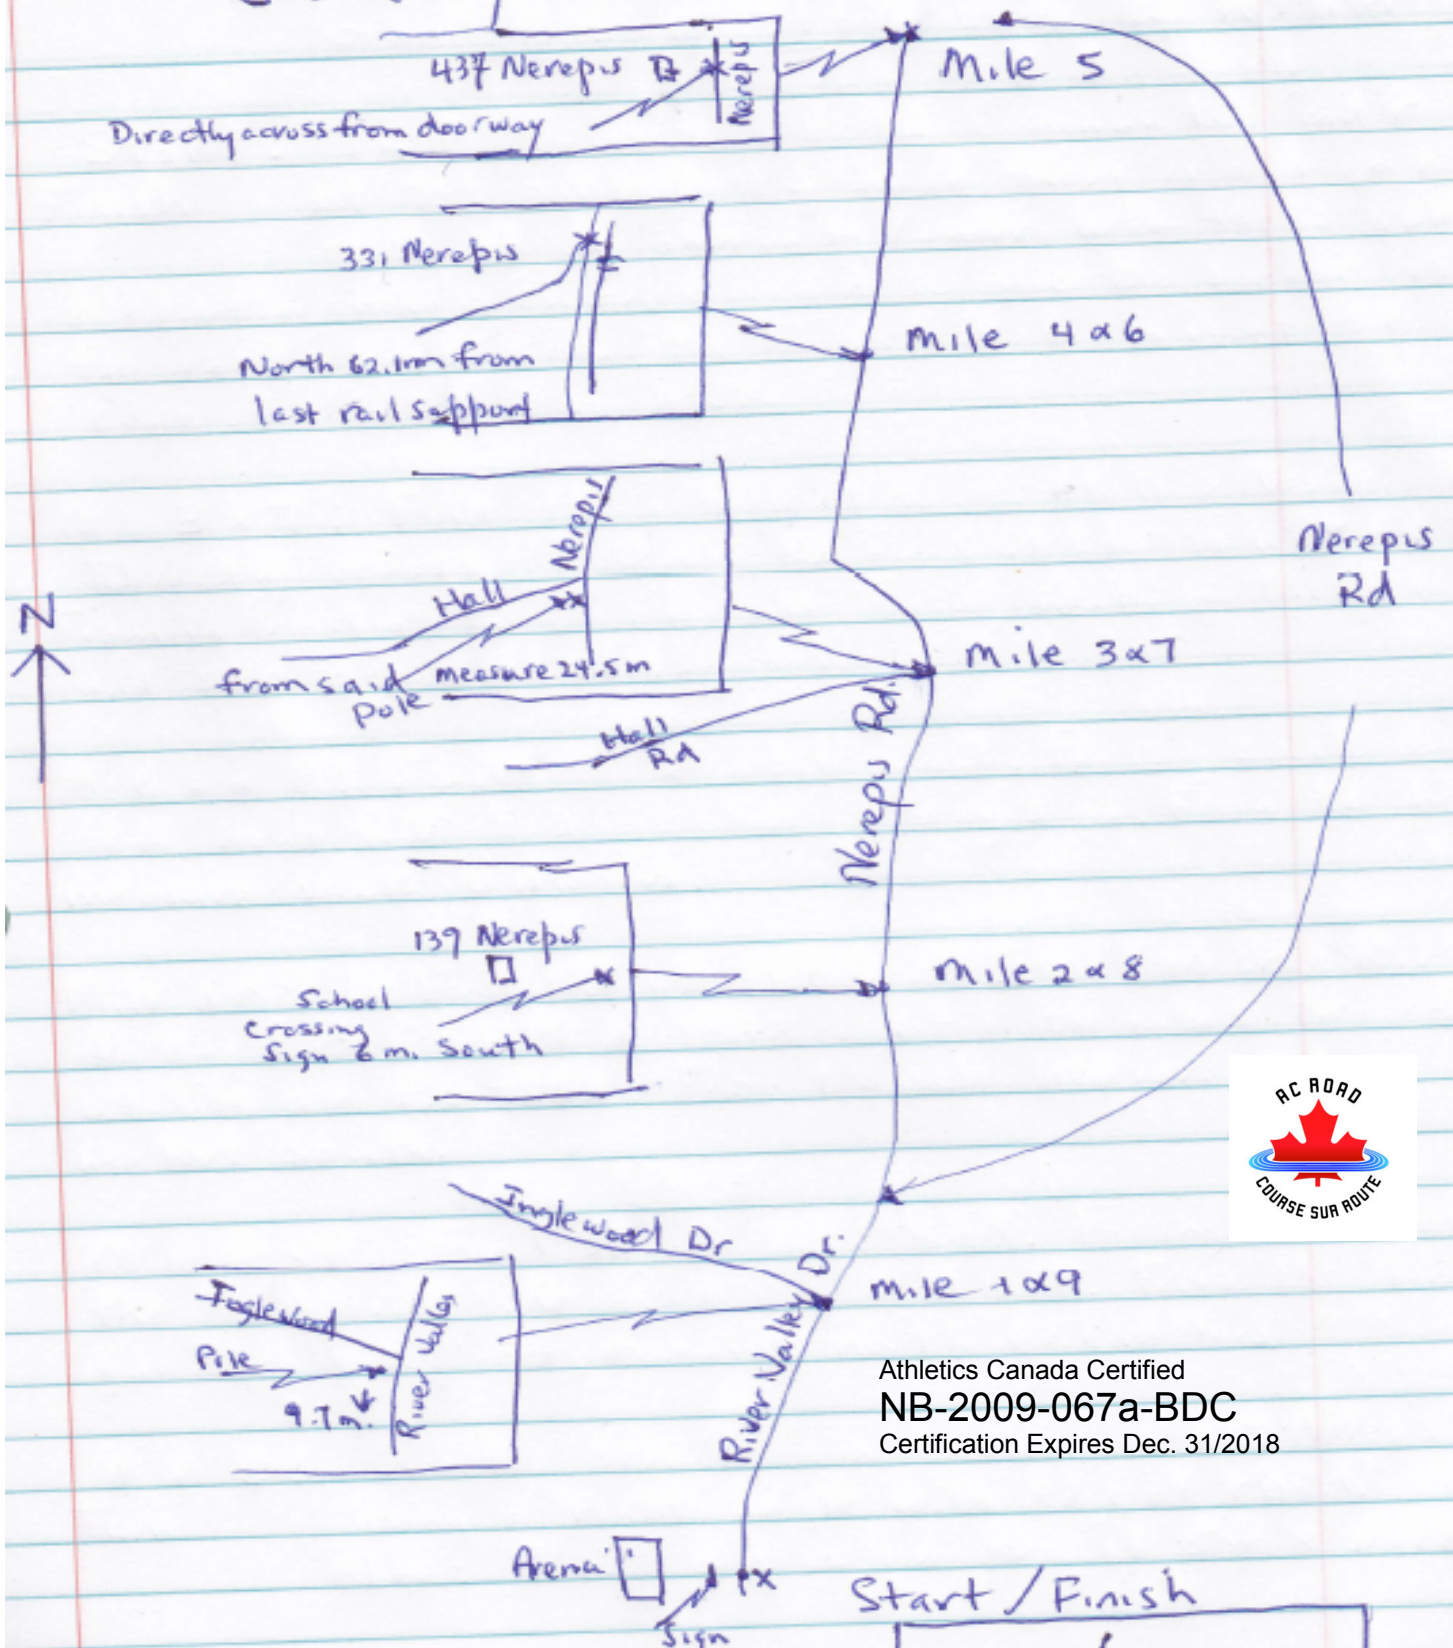 437 Nerepis
Nerepis
Mile 5
Directly across from doorway
331 Nerepis
North 62.1m from
last rail support
Mile 4 & 6
Nerepis
Rd
Nerepis
Hall
from said
Pole
measure 24.5m
Mile 3 & 7
Hall
Rd
Nerepis Rd.
N
139 Nerepis
School
Crossing
Sign 6 m. South
Mile 2 & 8
AC ROAD
COURSE SUR ROUTE
Inglewood Dr
Mile 1 & 9
River Valley Dr.
Inglewood
River Valley
Pole
9.7m.
Athletics Canada Certified
NB-2009-067a-BDC
Certification Expires Dec. 31/2018
Arena
x
Sign
Start / Finish